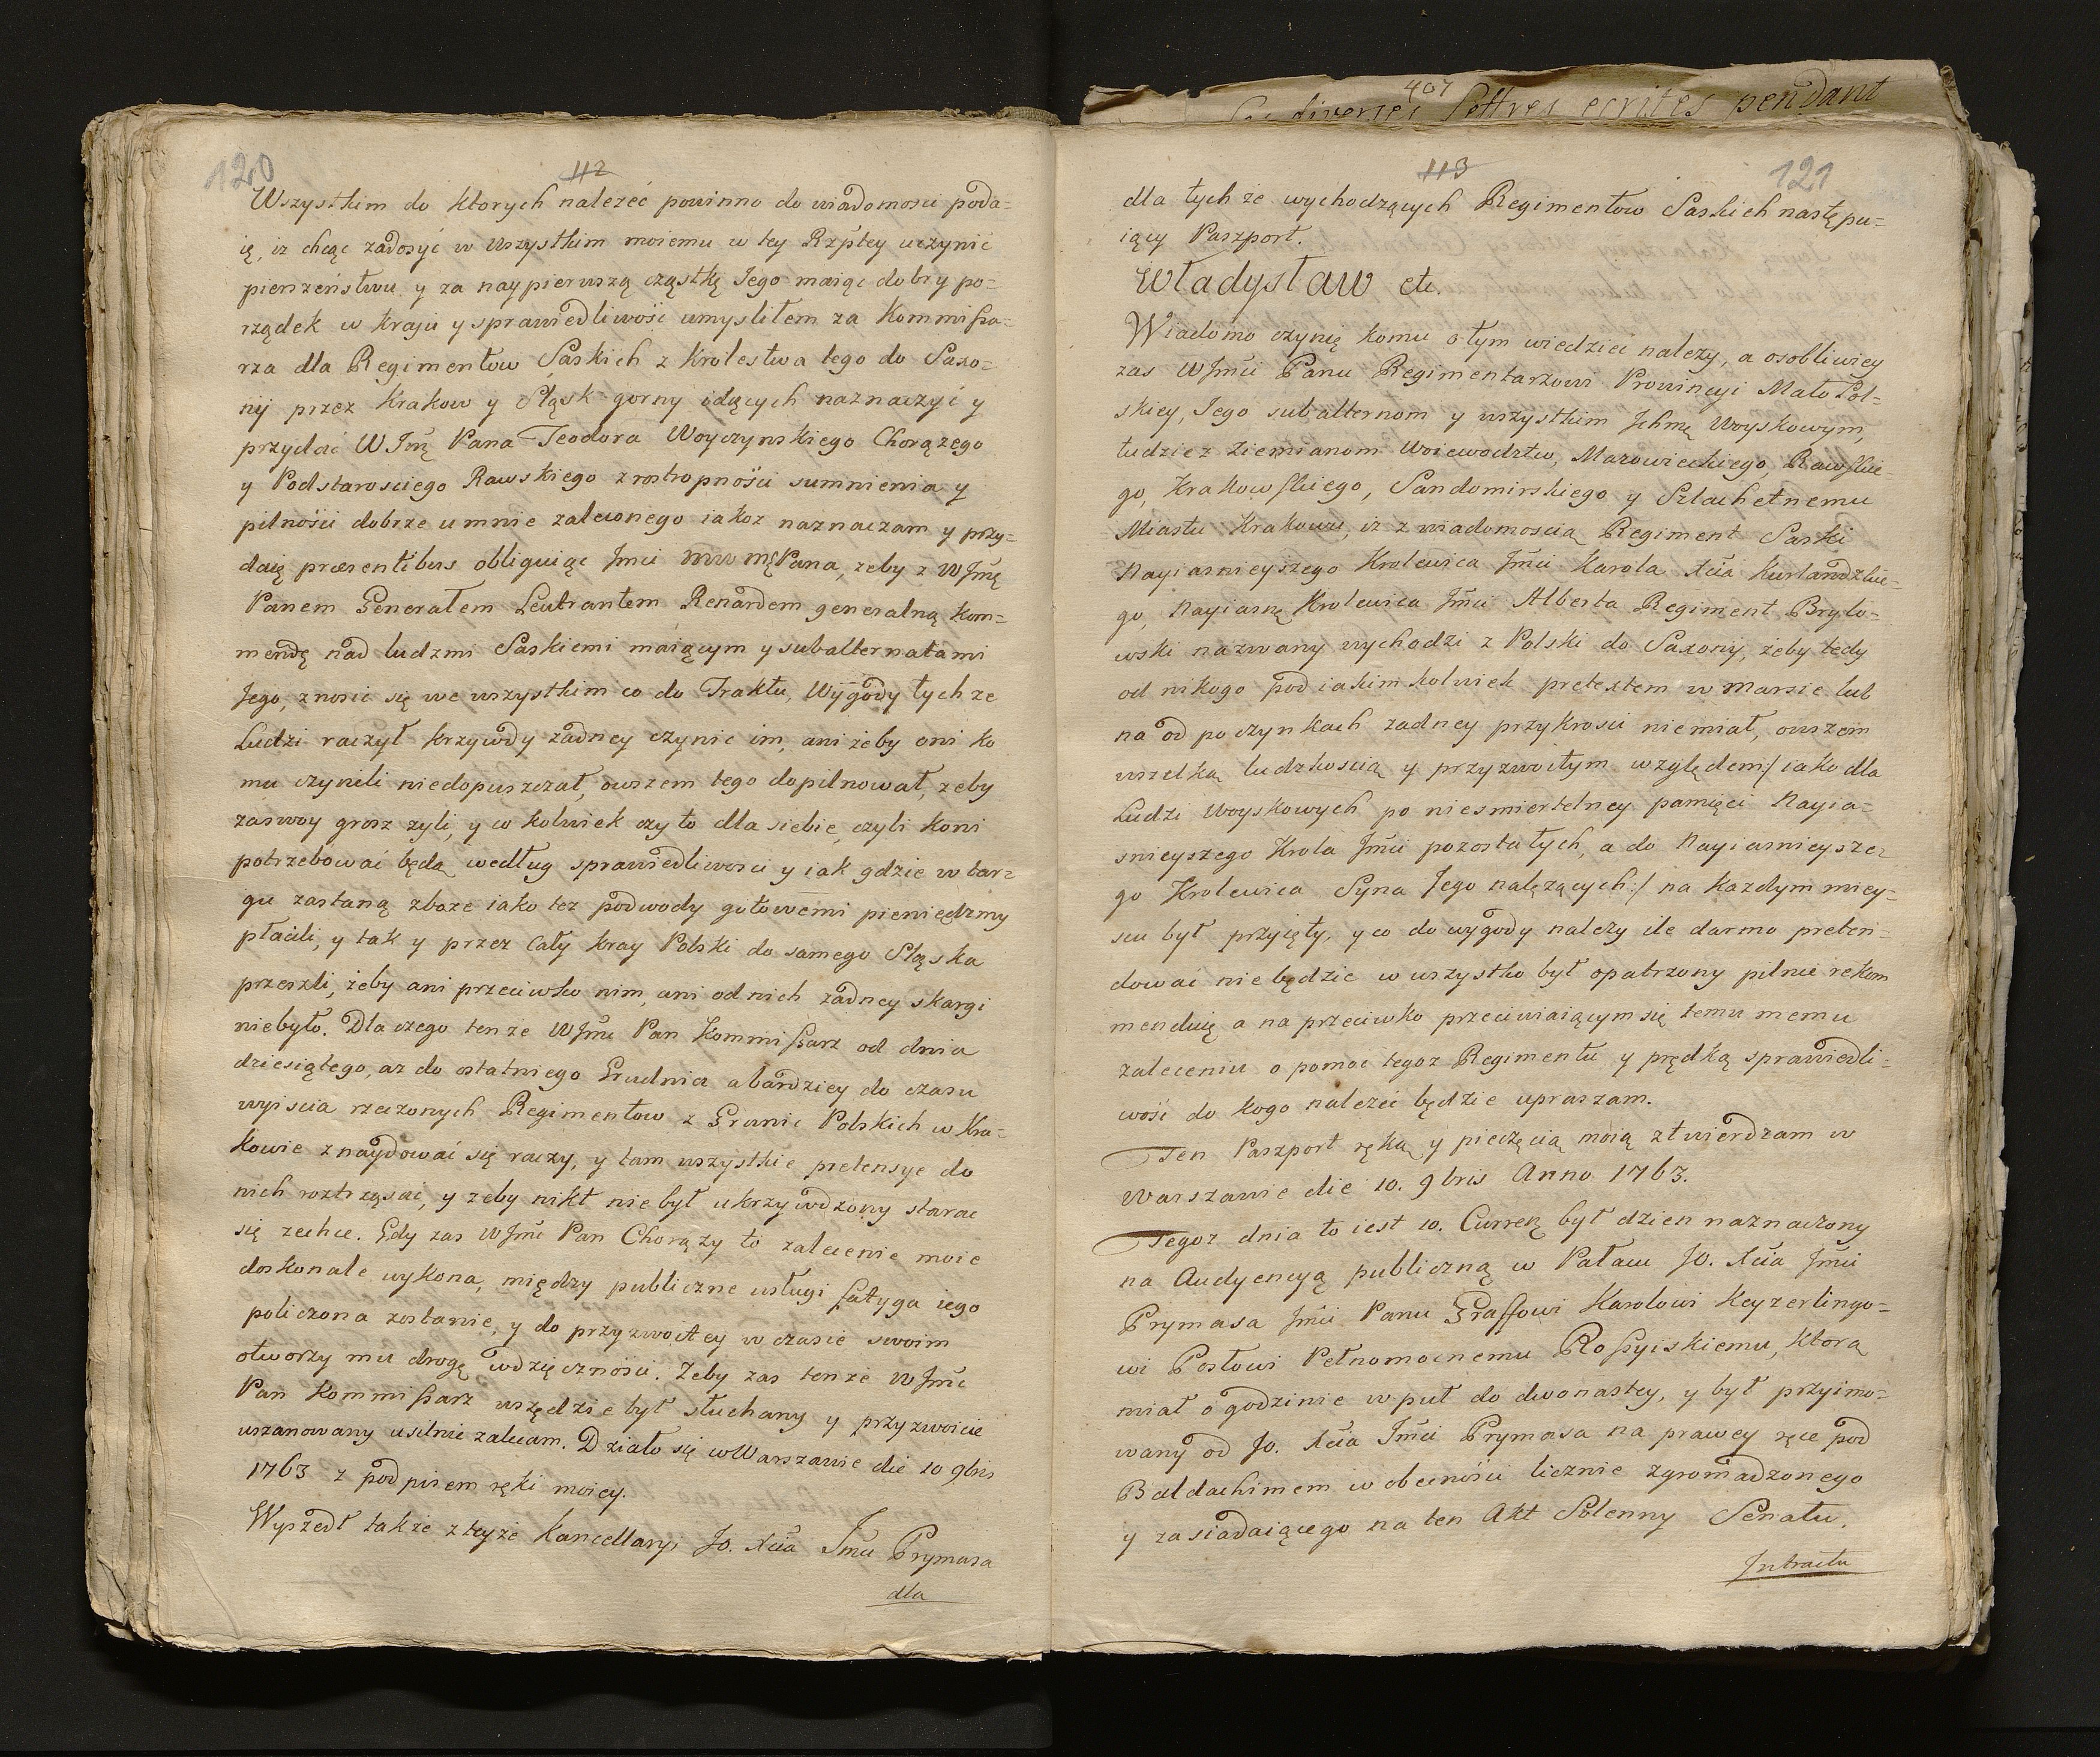 120
112
Wszystkim do ktorych nalezéć powinno do wiadomosci poda=
ię, iz chcąc zadosyć w wszystkim moiemu w tey Rzptey uczynić
pierszeństwu y za naypierwszą cząstkę Jego maiąc dobry po=
rządek w kraju y sprawiedliwość umyslitem za Kommißa=
rza dla Regimentow Saskich z Krolestwa tego do Saxo=
nij przez Krakow y Sląsk gorny idących naznaczyć y
przydać WJmę Pana Teodora Woyczynskiego Chorązego
y Podstarosciego Rawskiego z rostropności sumnienia y
pilności dobrze u mnie zaleconego iakoz naznaczam y przy=
daię præsentibus obliguiąc Jmci mw mę Pana, zeby z WJmę
Panem Generałem Leutnantem Renardem generalną kom=
mendę nad ludzmi Saskiemi maiącym y subalternatami
Jego, znosic się we wszystkim co do Traktu, Wygody tych ze
Ludzi raczył krzywdy zadney czynic im, ani żeby oni ko
mu czynili niedopuszczał, owszem tego dopilnował, zeby
zaswoy grosz zyli, y co kolwiek czy to dla siebie, czyli koni
potrzebować będą według sprawiedliwosci y iak gdzie w tar=
gu zastaną zboze iako tez podwody gotowemi pieniędzmy
płacili, y tak y przez Cały kray Polski do samego Sląska
przeszli, żeby ani przeciwko nim, ani od nich zadney skargi
niebyło. Dla czego ten ze WJmc Pan Kommißarz od dnia
dziesiątego, az do ostatniego Grudnia a bardziey do czasu
wyiscia rzeczonych Regimentow z Granic Polskich w Kra=
kowie znaydować się raczy, y tam wszystkie pretensye do
nich roztrząsać, y zeby nikt nie był ukrzywdzony starac
się zechce. Gdy zas WJmc Pan Chorązy to zalecenie moie
doskonale wykona, między publiczne usługi fatyga iego
policzona zostanie, y do przyzwoitey w czasie swoim
otworzy mu drogę wdzięczności. Zeby zas ten ze WJmc
Pan Kommißarz wszędzie był słuchany y przyzwoicie
uszanowany usilnie zalecam. Działo się w Warszawie die 10 9bris
1763 z podpisem ręki moiey.
Wyszedł także z teyze Kancellaryi Jo. Xcia Jmci Prymasa
dla
407
diverses Lettres ecrites pendant
113
121
dla tych ze wychodzących Regimentow Saskich następu=
iący Paszport.
Władysław etc.
Wiadomo czynię komu o tym wiedzieć nalezy, a osobliwiey
zas WJmci Panu Regimentarzowi Prowincyi Mało Pol=
skiey, Jego subalternom y wszystkim Jchmę Woyskowym,
tudziez Ziemianom Woiewodztw, Mazowieckiego, Rawskie=
go, Krakowskiego, Sandomirskiego y Szlachetnemu
Miastu Krakowu, iz z wiadomoscią Regiment Saski
Nayiasnieyszego Krolewica Jmci Karola Xcia Kurlandzkie=
go, Nayiasnę Krolewica Jmci Alberta Regiment Brylo=
wski nazwany wychodzi z Polski do Saxony, żeby tedy
od nikogo pod iakim kolwiek pretextem w marsie lub
na odpoczynkach zadney przykrosci niemiał, owszem
wszelką ludzkoscią y przyzwoitym względem:/ iako dla
Ludzi Woyskowych po niesmiertelney pamięci Nayia=
snieyszego Krola Jmci pozostałych, a do Nayiasnieysze=
go Krolewica Syna Jego nalęzących:/ na kazdym miey=
scu był przyięty, y co do wygody nalezy ile darmo preten=
dować nie będzie w wszystko był opatrzony pilnie rekom
menduię a na przeciwko przeciwiaiącym się temu memu
zaleceniu o pomoc tegoz Regimentu y prędką sprawiedli=
wość do kogo nalezeć będzie upraszam.
Ten Paszport ręką y pieczęcią moią ztwierdzam w
Warszawie die 10. 9bris Anno 1763.
Tegoz dnia to iest 10. Curreñ był dzien naznaczony
na Audyencyą publiczną w Pałacu JO. Xcia Jmci
Prymasa Jmci Panu Graffowi Karolowi Keyzerlingo=
wi Posłowi Pełnomocnemu Roßyiskiemu, Ktorą
miał o godzinie w puł do dwonastey, y był przyimo=
wany od Jo. Xcia Jmci Prymasa na prawey ręce pod
Baldachimem w obecności licznie zgromadzonego
y zasiadaiącego na ten Akt Solenny Senatu.
Jntractu